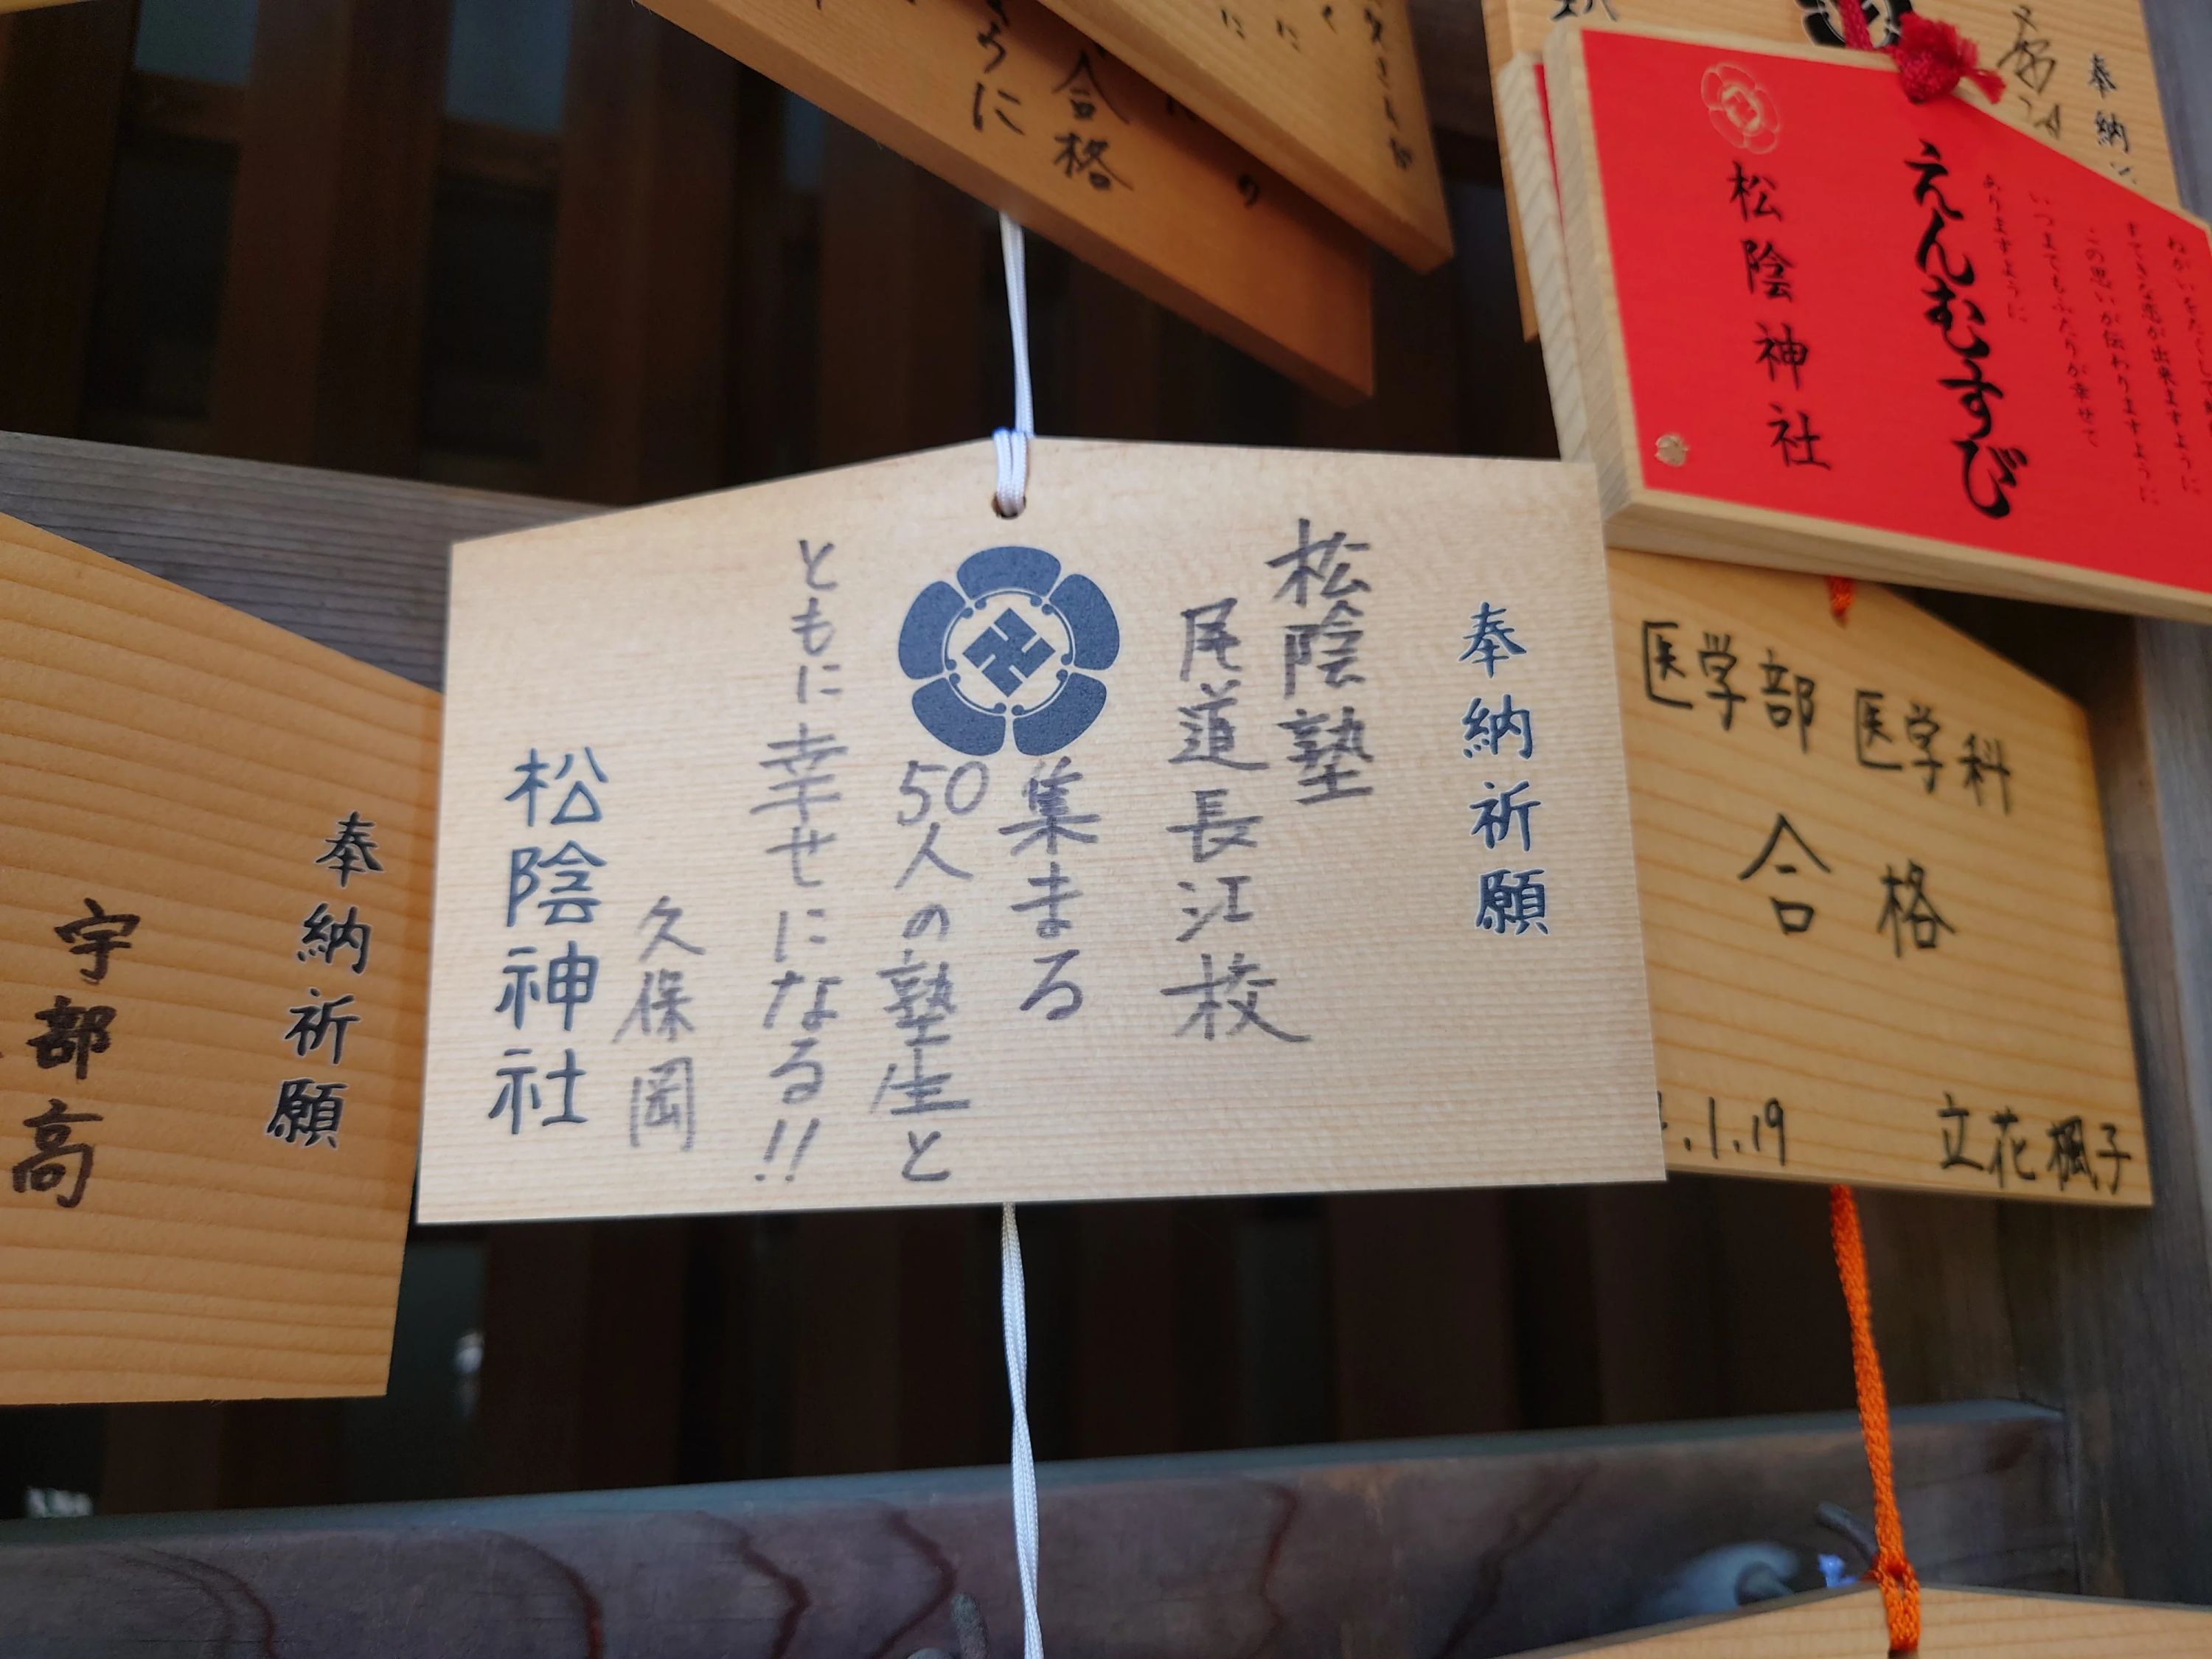 奉納祈願
松陰塾
尾道長江校
集まる
50人の塾生と
ともに幸せになる!!
久保岡
松陰神社
えんむすび
松陰神社
すてきな恋が出来ますように
この思いが伝わりますように
いつまでもふたりが幸せで
ありますように
奉納
医学部 医学科
合格
.1.19
立花楓子
奉納祈願
宇部高
合格
ように